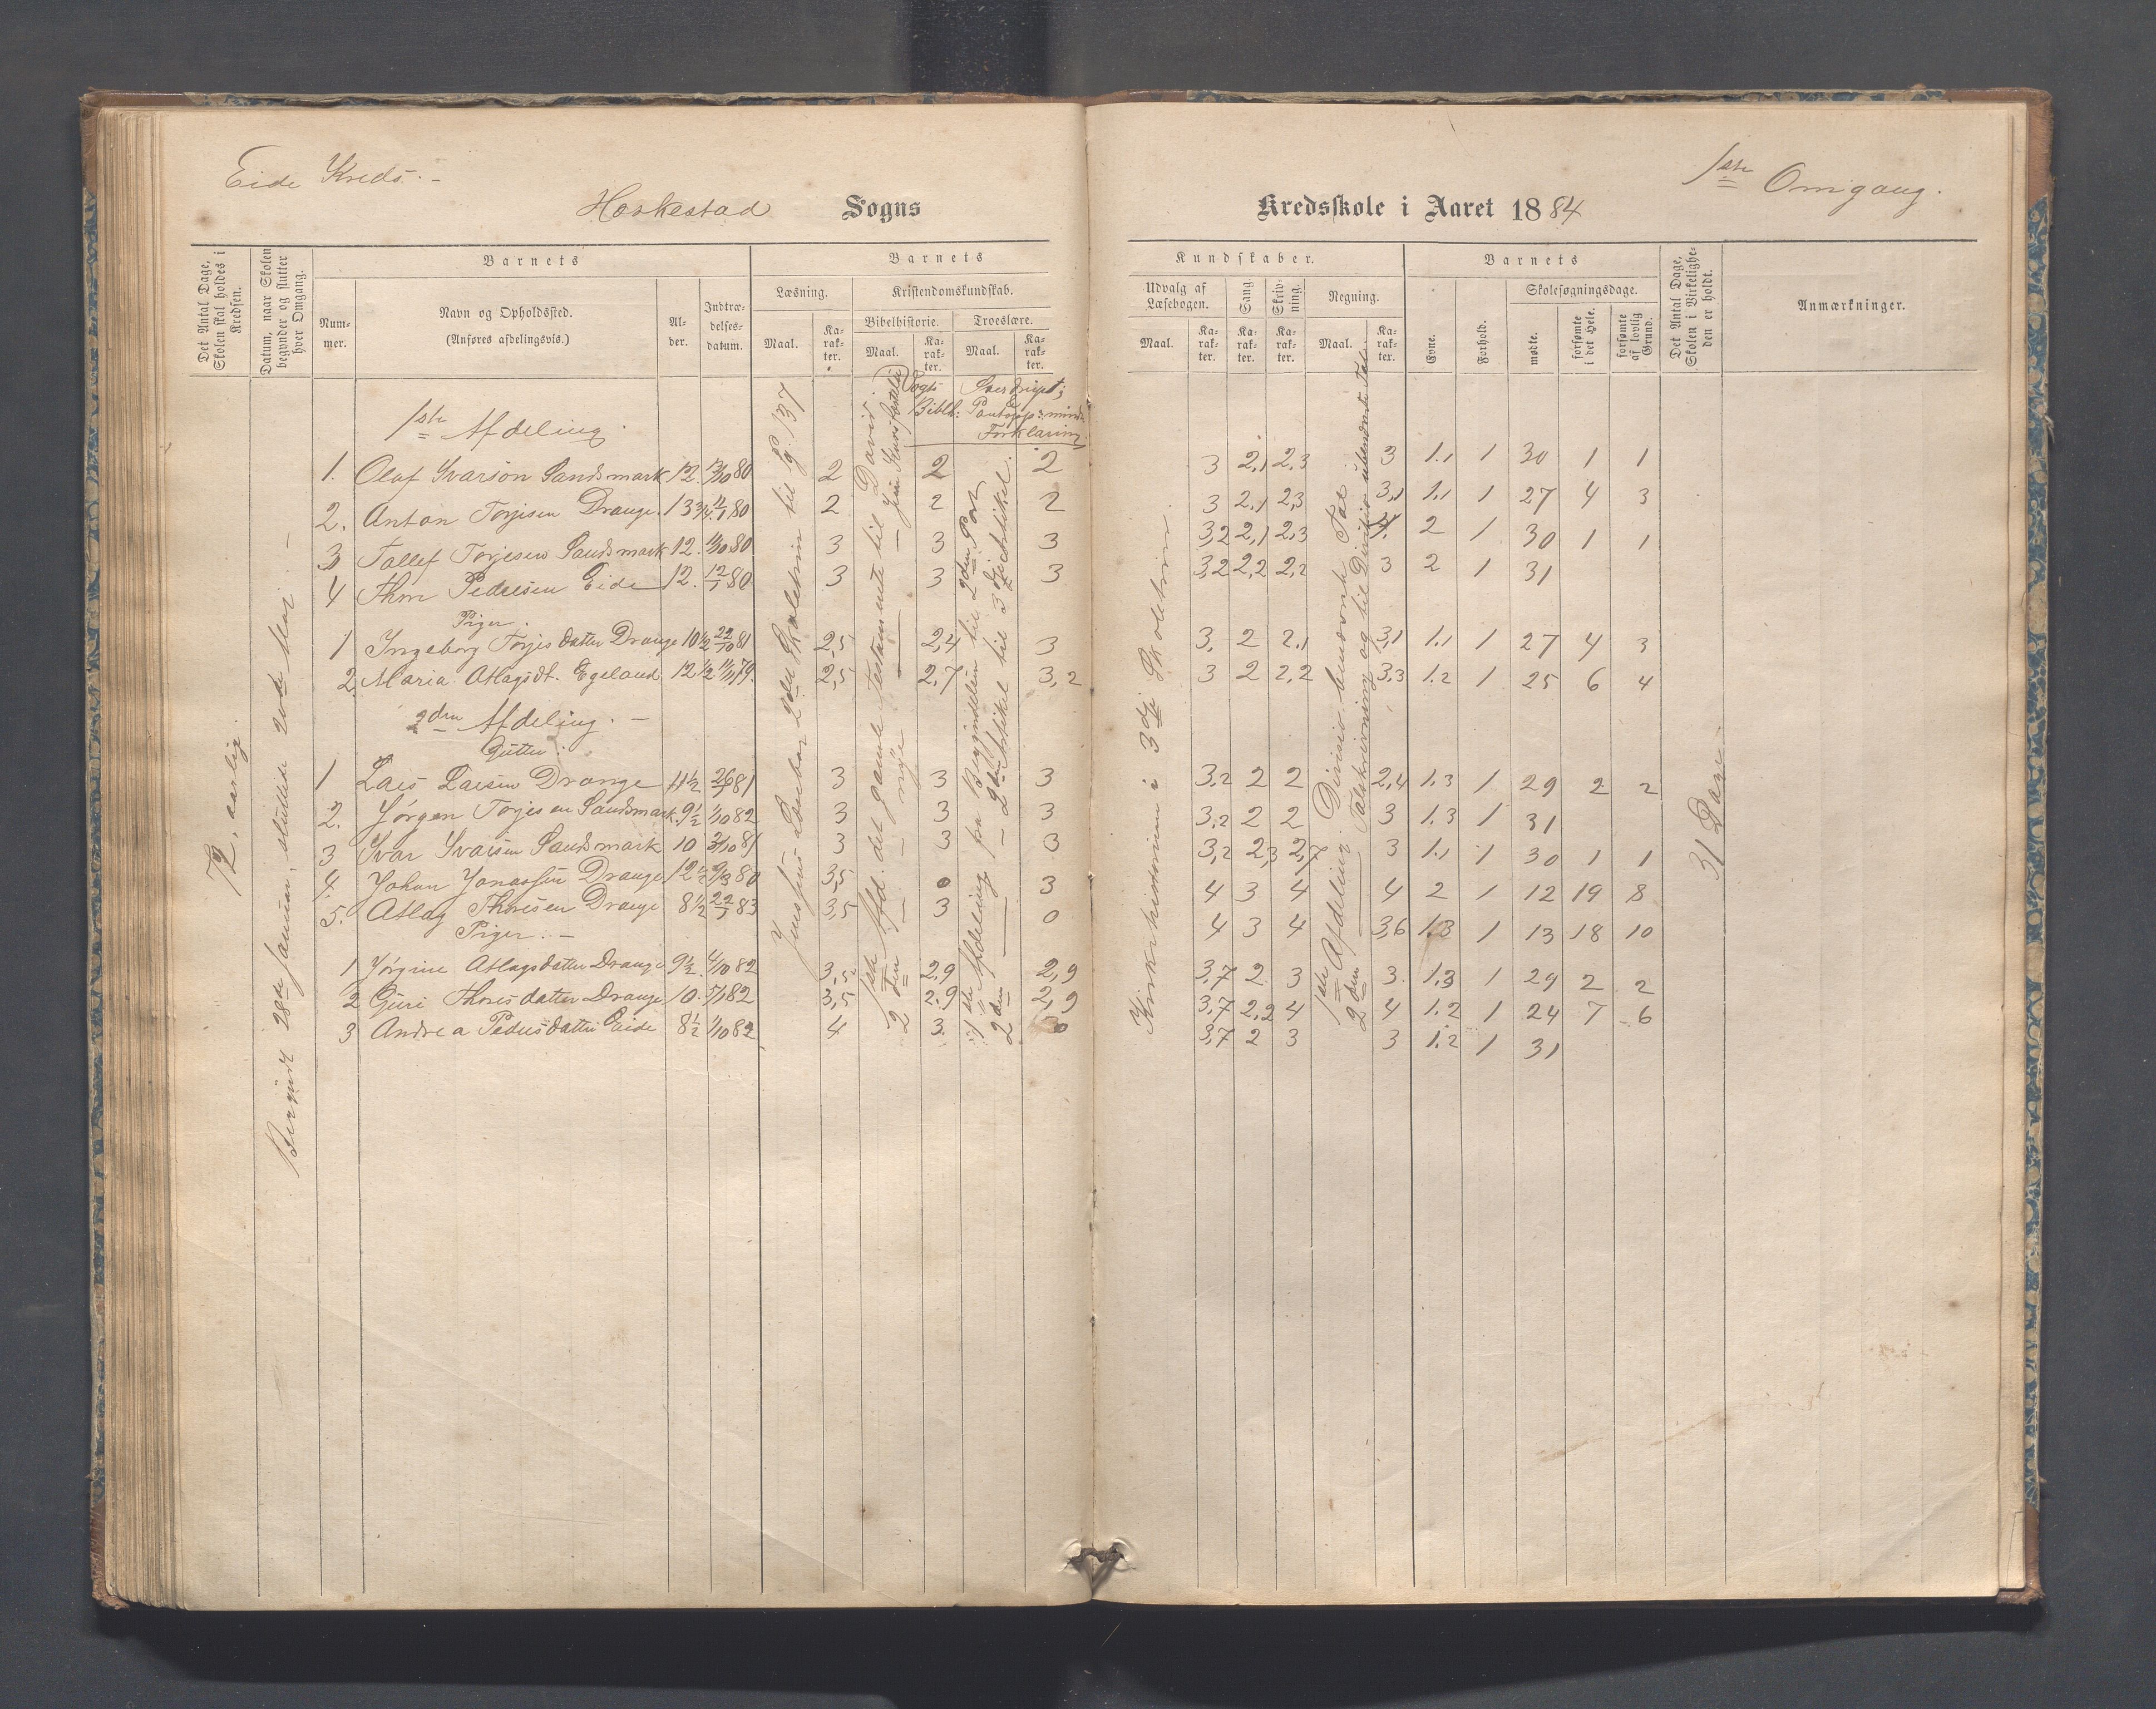 Eide Kreds. -
Heskestad Sogns
Kredsskole i Aaret 1884
1ste Omgang.
Det Antal Dage, Skolen skal holdes i Kredsen.
Datum, naar Skolen begynder og slutter hver Omgang.
Barnets
Barnets
Kundskaber.
Barnets
Det Antal Dage, Skolen i Virkelighe-den er holdt.
Anmærkninger.
Num-mer.
Navn og Opholdssted.
(Anføres afdelingsvis.)
Al-der.
Indtræ-delses-datum.
Læsning.
Kristendomskundskab.
Bibelhistorie.
Troeslære.
Udvalg af Læsebogen.
Sang
Skriv-ning.
Regning.
Evne.
Forhold.
Skolesøgningsdage.
Maal. Ka-rak-ter. Maal. Ka-rak-ter. Maal. Ka-rak-ter.
Maal. Ka-rak-ter. Ka-rak-ter. Ka-rak-ter. Maal. Ka-rak-ter.
mødte. forsømte i det Hele. forsømte af lovlig Grund.
Vogts Bibl: Sverdrups; Pontopp: mindre Forklaring
72, aarlig.
Begyndt 28de Januar, sluttede 20de Mai. -
Jensens Læsebog 2det Skoletrin til Pg. 137
1ste Afd. det gamle Testamente til David.
2den - - nye - -
1ste Afdeling fra Begyndelsen til 2den Part
2den - - 2den Artikel til 3die Artikel.
Kirkehistorien i 3die Skoletrin.
1ste Afdeling: Division benævnte Tal.
2den - Talskrivning og til Division ubenævnte Tal.
31 Dage
1ste Afdeling.
1. Olaf Ivarson Sandsmark 12. 13/10 80 2 2 2 3 2,1 2,3 3 1.1 1 30 1 1
2. Anton Torjesen Drange. 13 3/4. 11/1 80 2 2 2 3 2,1 2,3 3,1 1.1 1 27 4 3
3 Tollef Torjesen Sandsmark 12. 11/10 80 3 3 3 3,2 2,1 2,3 4 2 1 30 1 1
4 Thore Pedersen Eide 12. 12/1 80 3 3 3 3,2 2,2 2,2 3 2 1 31
Piger.
1 Ingeborg Torjesdatter Drange 10 1/2 22/10 81 2,5 2,4 3 3, 2 2,1 3,1 1.1 1 27 4 3
2. Maria Atlagsdt. Egeland 12 1/2 11/11 79. 2,5 2,7 3,2 3 2 2,2 3,3 1.2 1 25 6 4
2den Afdeling. -
Gutter.
1 Lars Larsen Drange 11 1/2 26/1 81 3 3 3 3,2 2 2 2,4 1.3 1 29 2 2
2. Jørgen Torjesen Sandsmark. 9 1/2 1/10 82 3 3 3 3,2 2 2 3 1.3 1 31
3 Ivar Ivarsen Sandsmark 10 3/10 81 3 3 3 3,2 2,3 2,7 3 1.1 1 30 1 1
4. Johan Jonassen Drange 12 1/2 9/3 80 3,5 0 3 4 3 4 4 2 1 12 19 8
5. Atlag Thoresen Drange 8 1/2 22/1 83 3,5 3 0 4 3 4 3,6 1.3 1 13 18 10
Piger. -
1 Jørgine Atlagsdatter Drange 9 1/2. 4/10 82 3,5 2,9 2,9 3,7 2 3 3. 1.3 1 29 2 2
2 Guri Thoresdatter Drange 10. 5/1 82 3,5 2,9 2,9 3,7 2,2 4 4 1.2 1 24 7 6
3 Andrea Pedersdatter Eide 8 1/2 1/10 82 4 3. 0 3,7 2 3 3 1.2 1 31